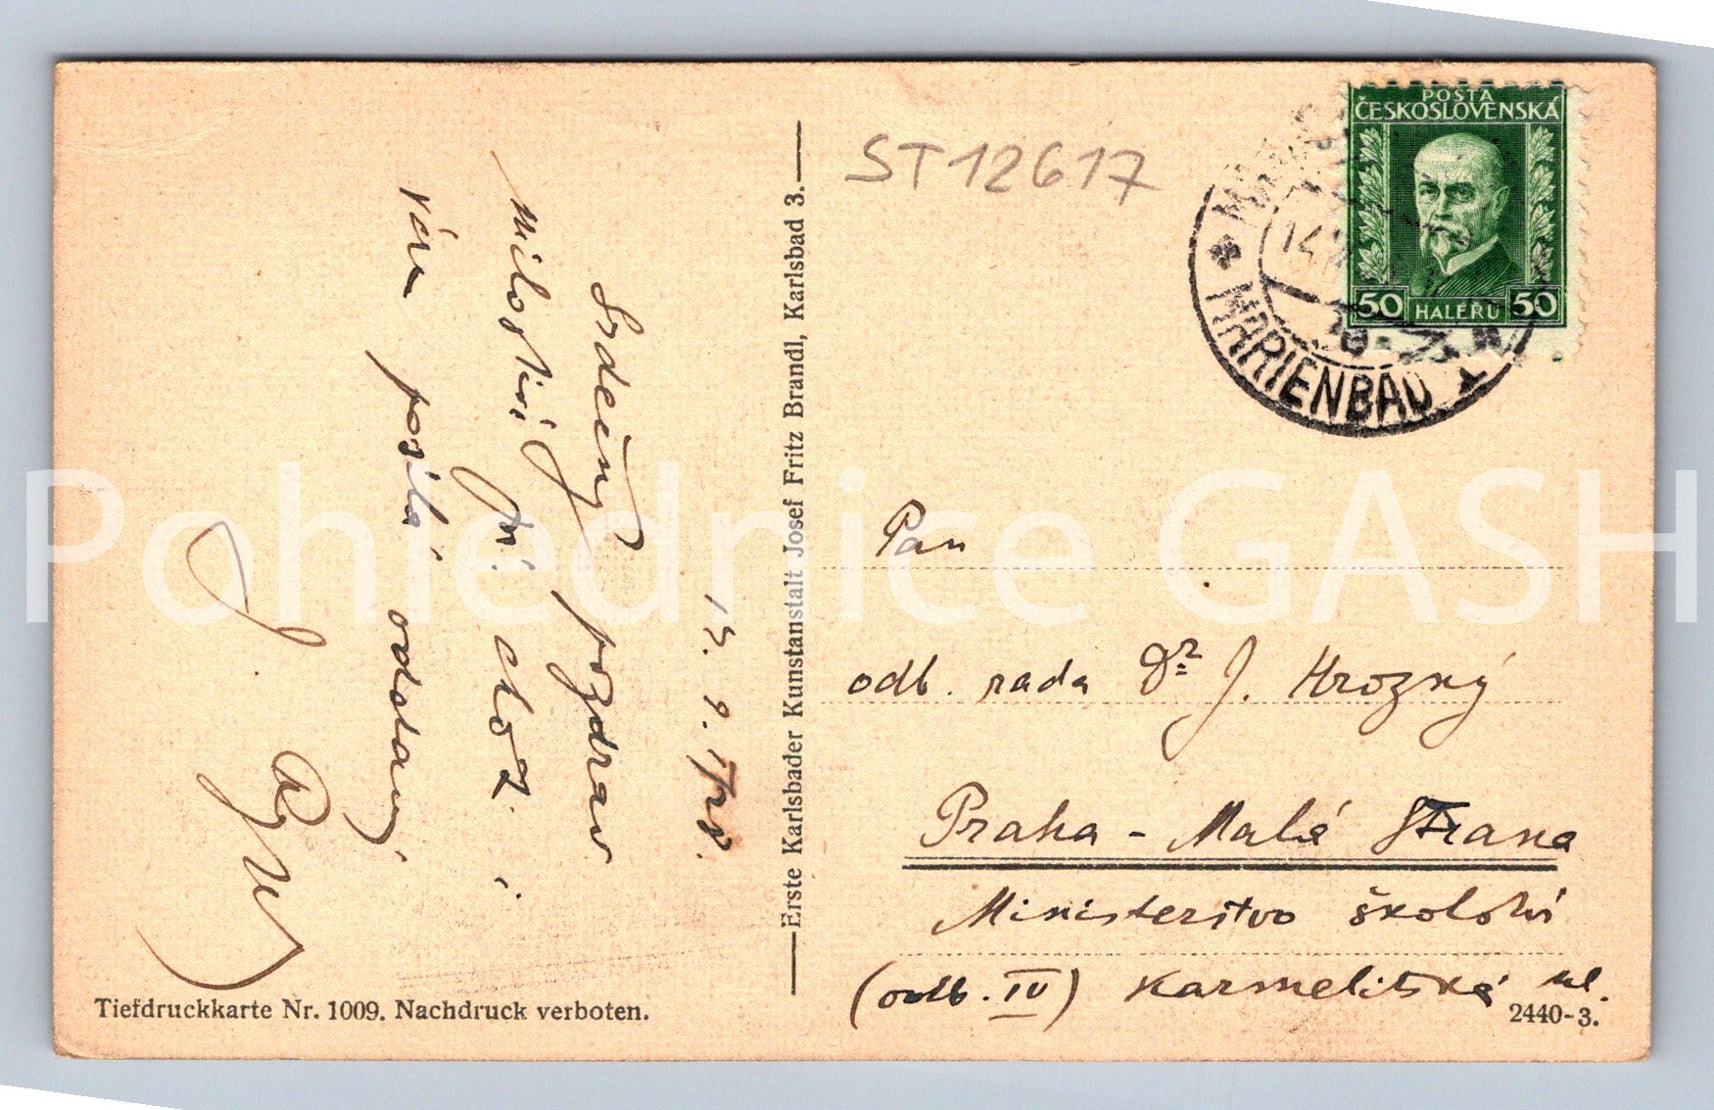 ST12617
POSTA
ČESKOSLOVENSKÁ
50 HALERU 50
MARIENBAD
Srdečný pozdrav
milostivé
vám posílá oddaný
J.
Erste Karlsbader Kunstanstalt Josef Fritz Brandl, Karlsbad 3.
Pan
odb. rada Dr J. Hrozný
Praha - Malá Strana
Ministerstvo školství
(odb. IV) Karmelitská ul.
Tiefdruckkarte Nr. 1009. Nachdruck verboten.
2440-3.
Pohlednice GASH